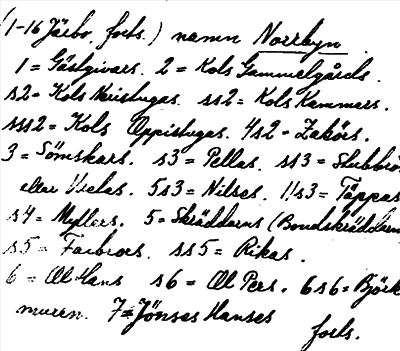 (1-16 Järbo, forts.) namn Norrbyn.
1 = Gästgivars. 2 = Kols Gammelgårds.
s2 = Kols Neristugas. ss2 = Kols Kammars.
sss2 = Kols Oppistugas. 4s2 = Zakörs.
3 = Sömskars. s3 = Pellas. ss3 =
eller 5s3 = Nilses. 11s3 = Täppas
s4 = Myllers. 5 = Skräddarns (Bondskräddarn
s5 = Farbrors. ss5 = Rikas.
6 = Ol Hans s6 = Ol Pers. 6s6 = Björk
murrn. 7 = Jönses Hanses
forts.